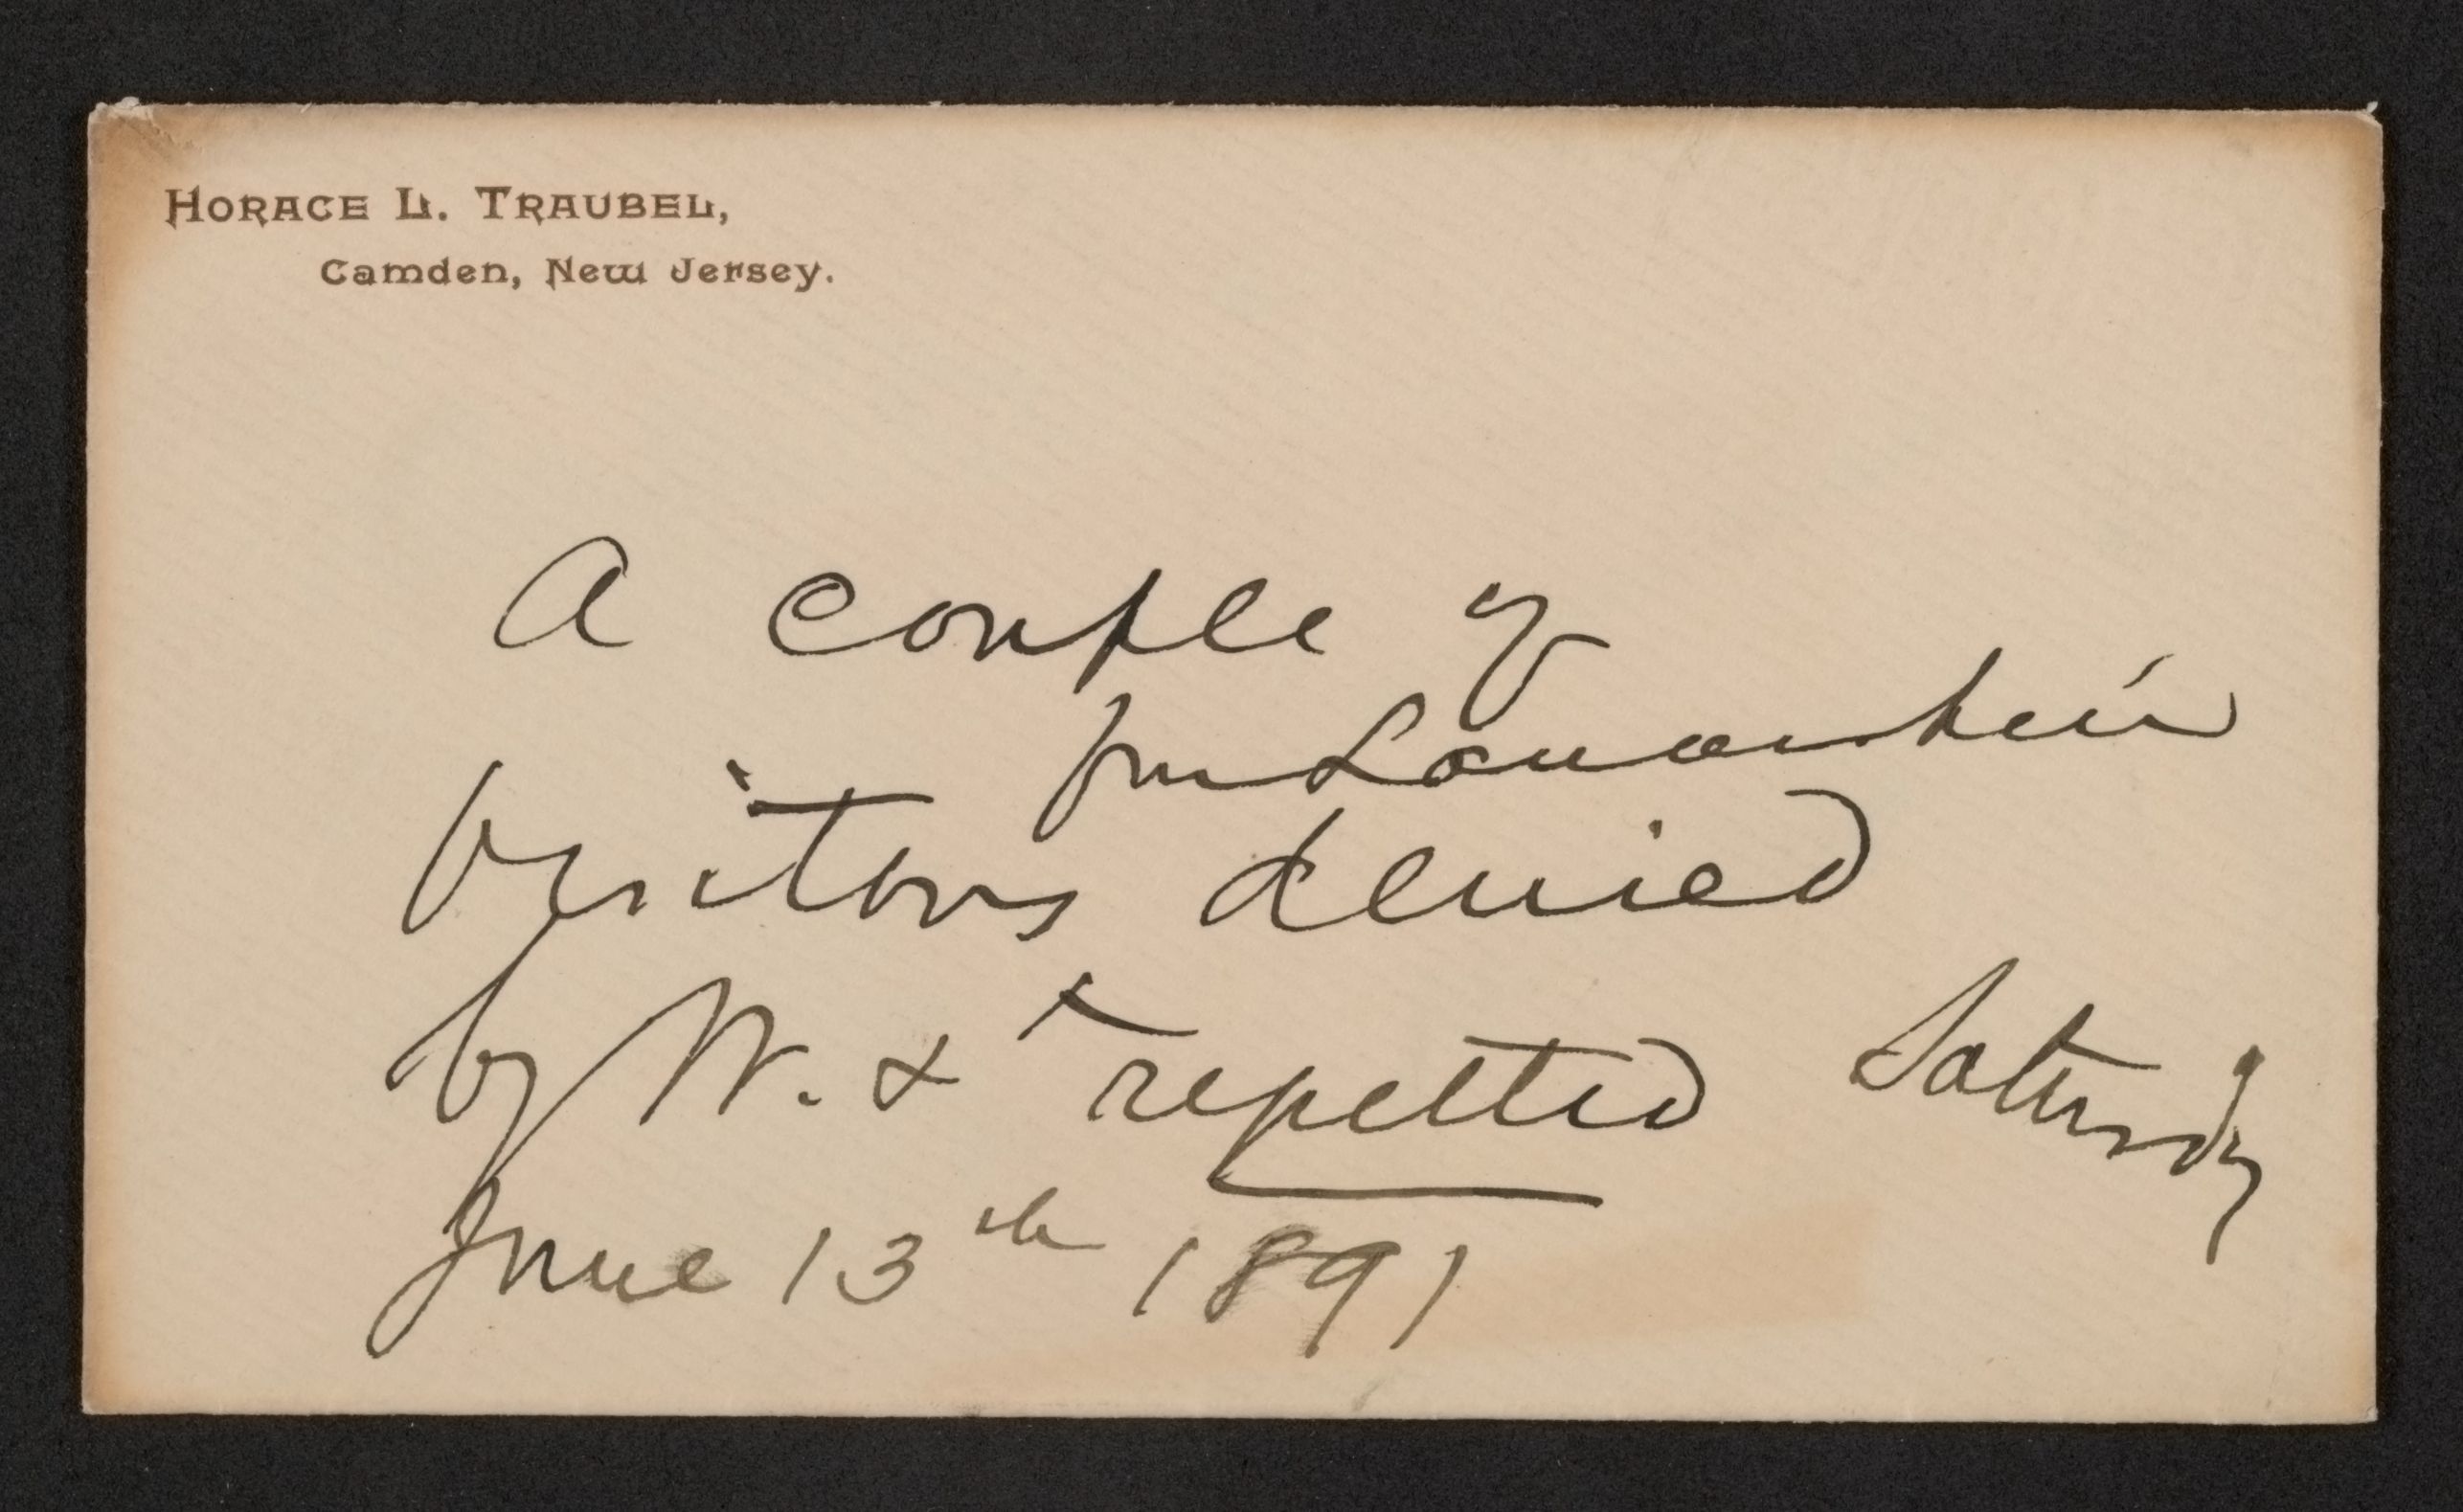 HORACE L. TRAUBEL,
Camden, New Jersey.
A couple of
visitors denied
by W. & repelled Saturdy
June 13th 1891